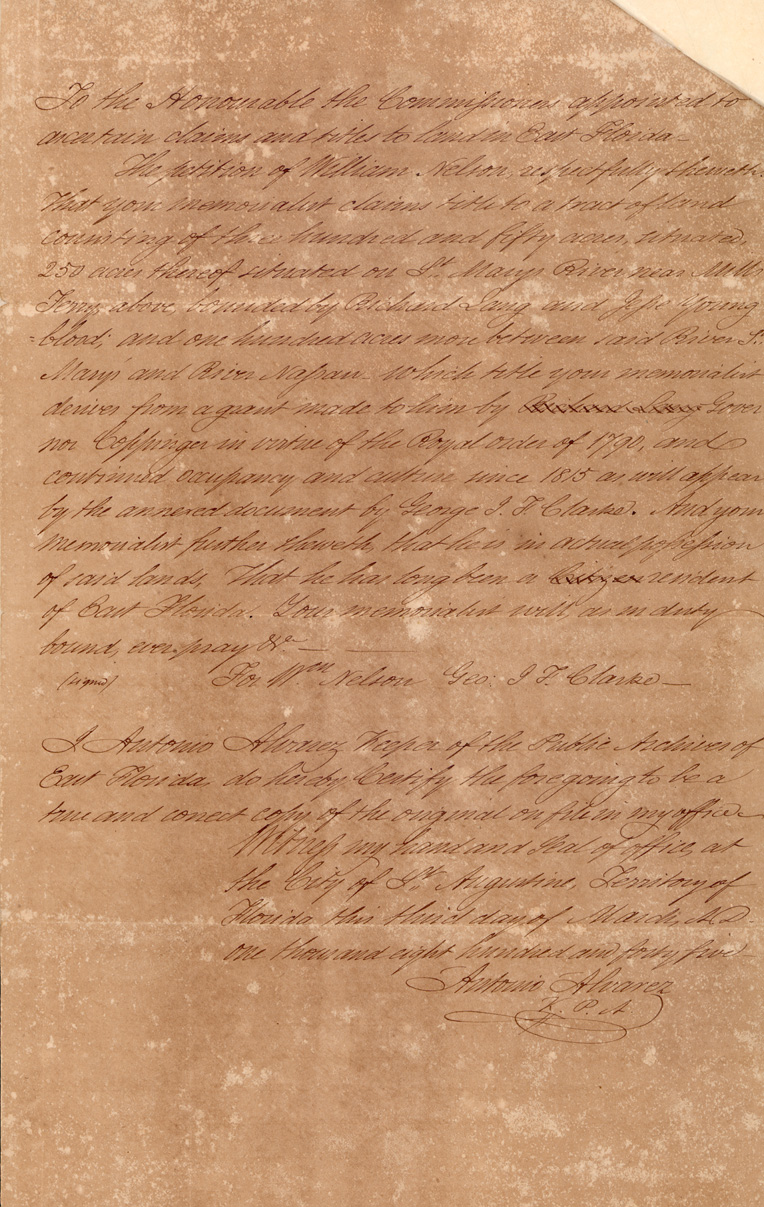 To the Honourable the Commissioners appointed to
ascertain claims and titles to land in East Florida—
The petition of William Nelson, respectfully sheweth.
That your memorialist claims title to a tract of land
consisting of three hundred and fifty acres, situated,
250 acres thereof situated on St. Marys River near Mills
Ferry above, bounded by Richard Lang and Jesse Young
=blood; and one hundred acres more between said River St.
Marys and River Nassau. Which title your memorialist
derives from a grant made to him by Richard Lang Gover
nor Coppinger in virtue of the Royal order of 1790, and
continued occupancy and culture since 1815 as will appear
by the annexed document by George I. F. Clarke. And your
memorialist further sheweth, that he is in actual possession
of said lands, That he has long been a Citizen resident
of East Florida. Your memorialist will, as in duty
bound, ever pray &c—
(signed) For Wm Nelson Geo: I F. Clarke—
I Antonio Alvarez Keeper of the Public Archives of
East Florida, do hereby Certify the foregoing to be a
true and correct copy of the original on file in my office—
Witness my hand and Seal of office, at
the City of St. Augustine, Territory of
Florida this third day of March, A.D.
one thousand eight hundred and forty five—
Antonio Alvarez
K. P. A